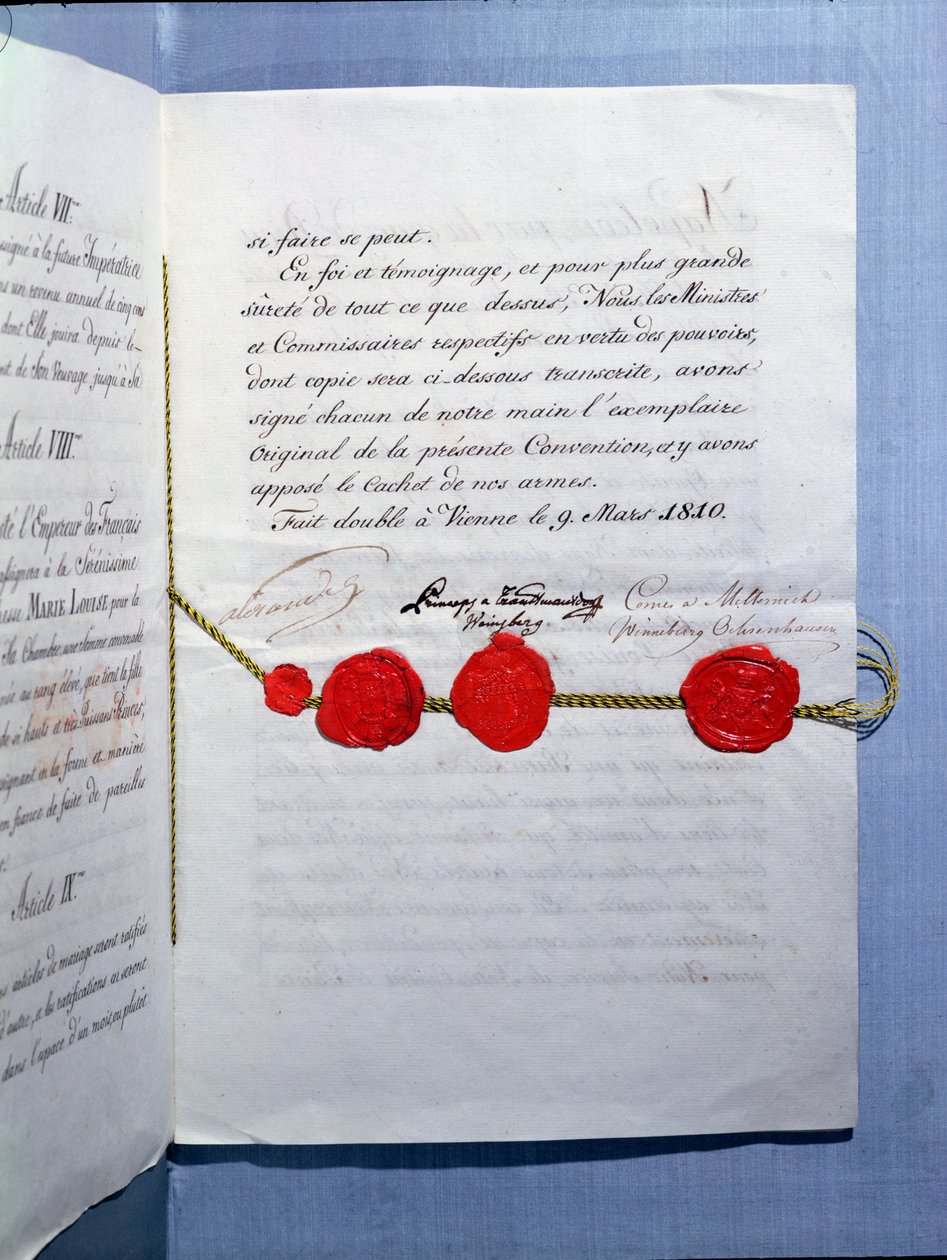 Article VII.me
signé à la future Impératrice
un revenu annuel de cinq cens
dont Elle jouira depuis le-
nt de Son Veuvage jusqu'à Sa
Article VIII.me
té l'Empereur des Français
signera à la Sérénissime
esse MARIE LOUISE pour la
Sa Chambre, une somme convenable
née au rang élevé, que tient la fille
de si hauts et très Puissans Princes,
signant en la forme et manière
en france de faire de pareilles
Article IX.me
articles de mariage seront ratifiés
d'autre, et les ratifications en seront
dans l'espace d'un mois, ou plutôt
si faire se peut.
En foi et témoignage, et pour plus grande
sûreté de tout ce que dessus, Nous, les Ministres
et Commissaires respectifs en vertu des pouvoirs,
dont copie sera ci-dessous transcrite, avons
signé chacun de notre main l'exemplaire
Original de la présente Convention, et y avons
apposé le Cachet de nos armes.
Fait double à Vienne le 9. Mars 1810.
Princeps a Trauttmansdorff
Weinsberg
Comes a Metternich
Winneburg Ochsenhausen